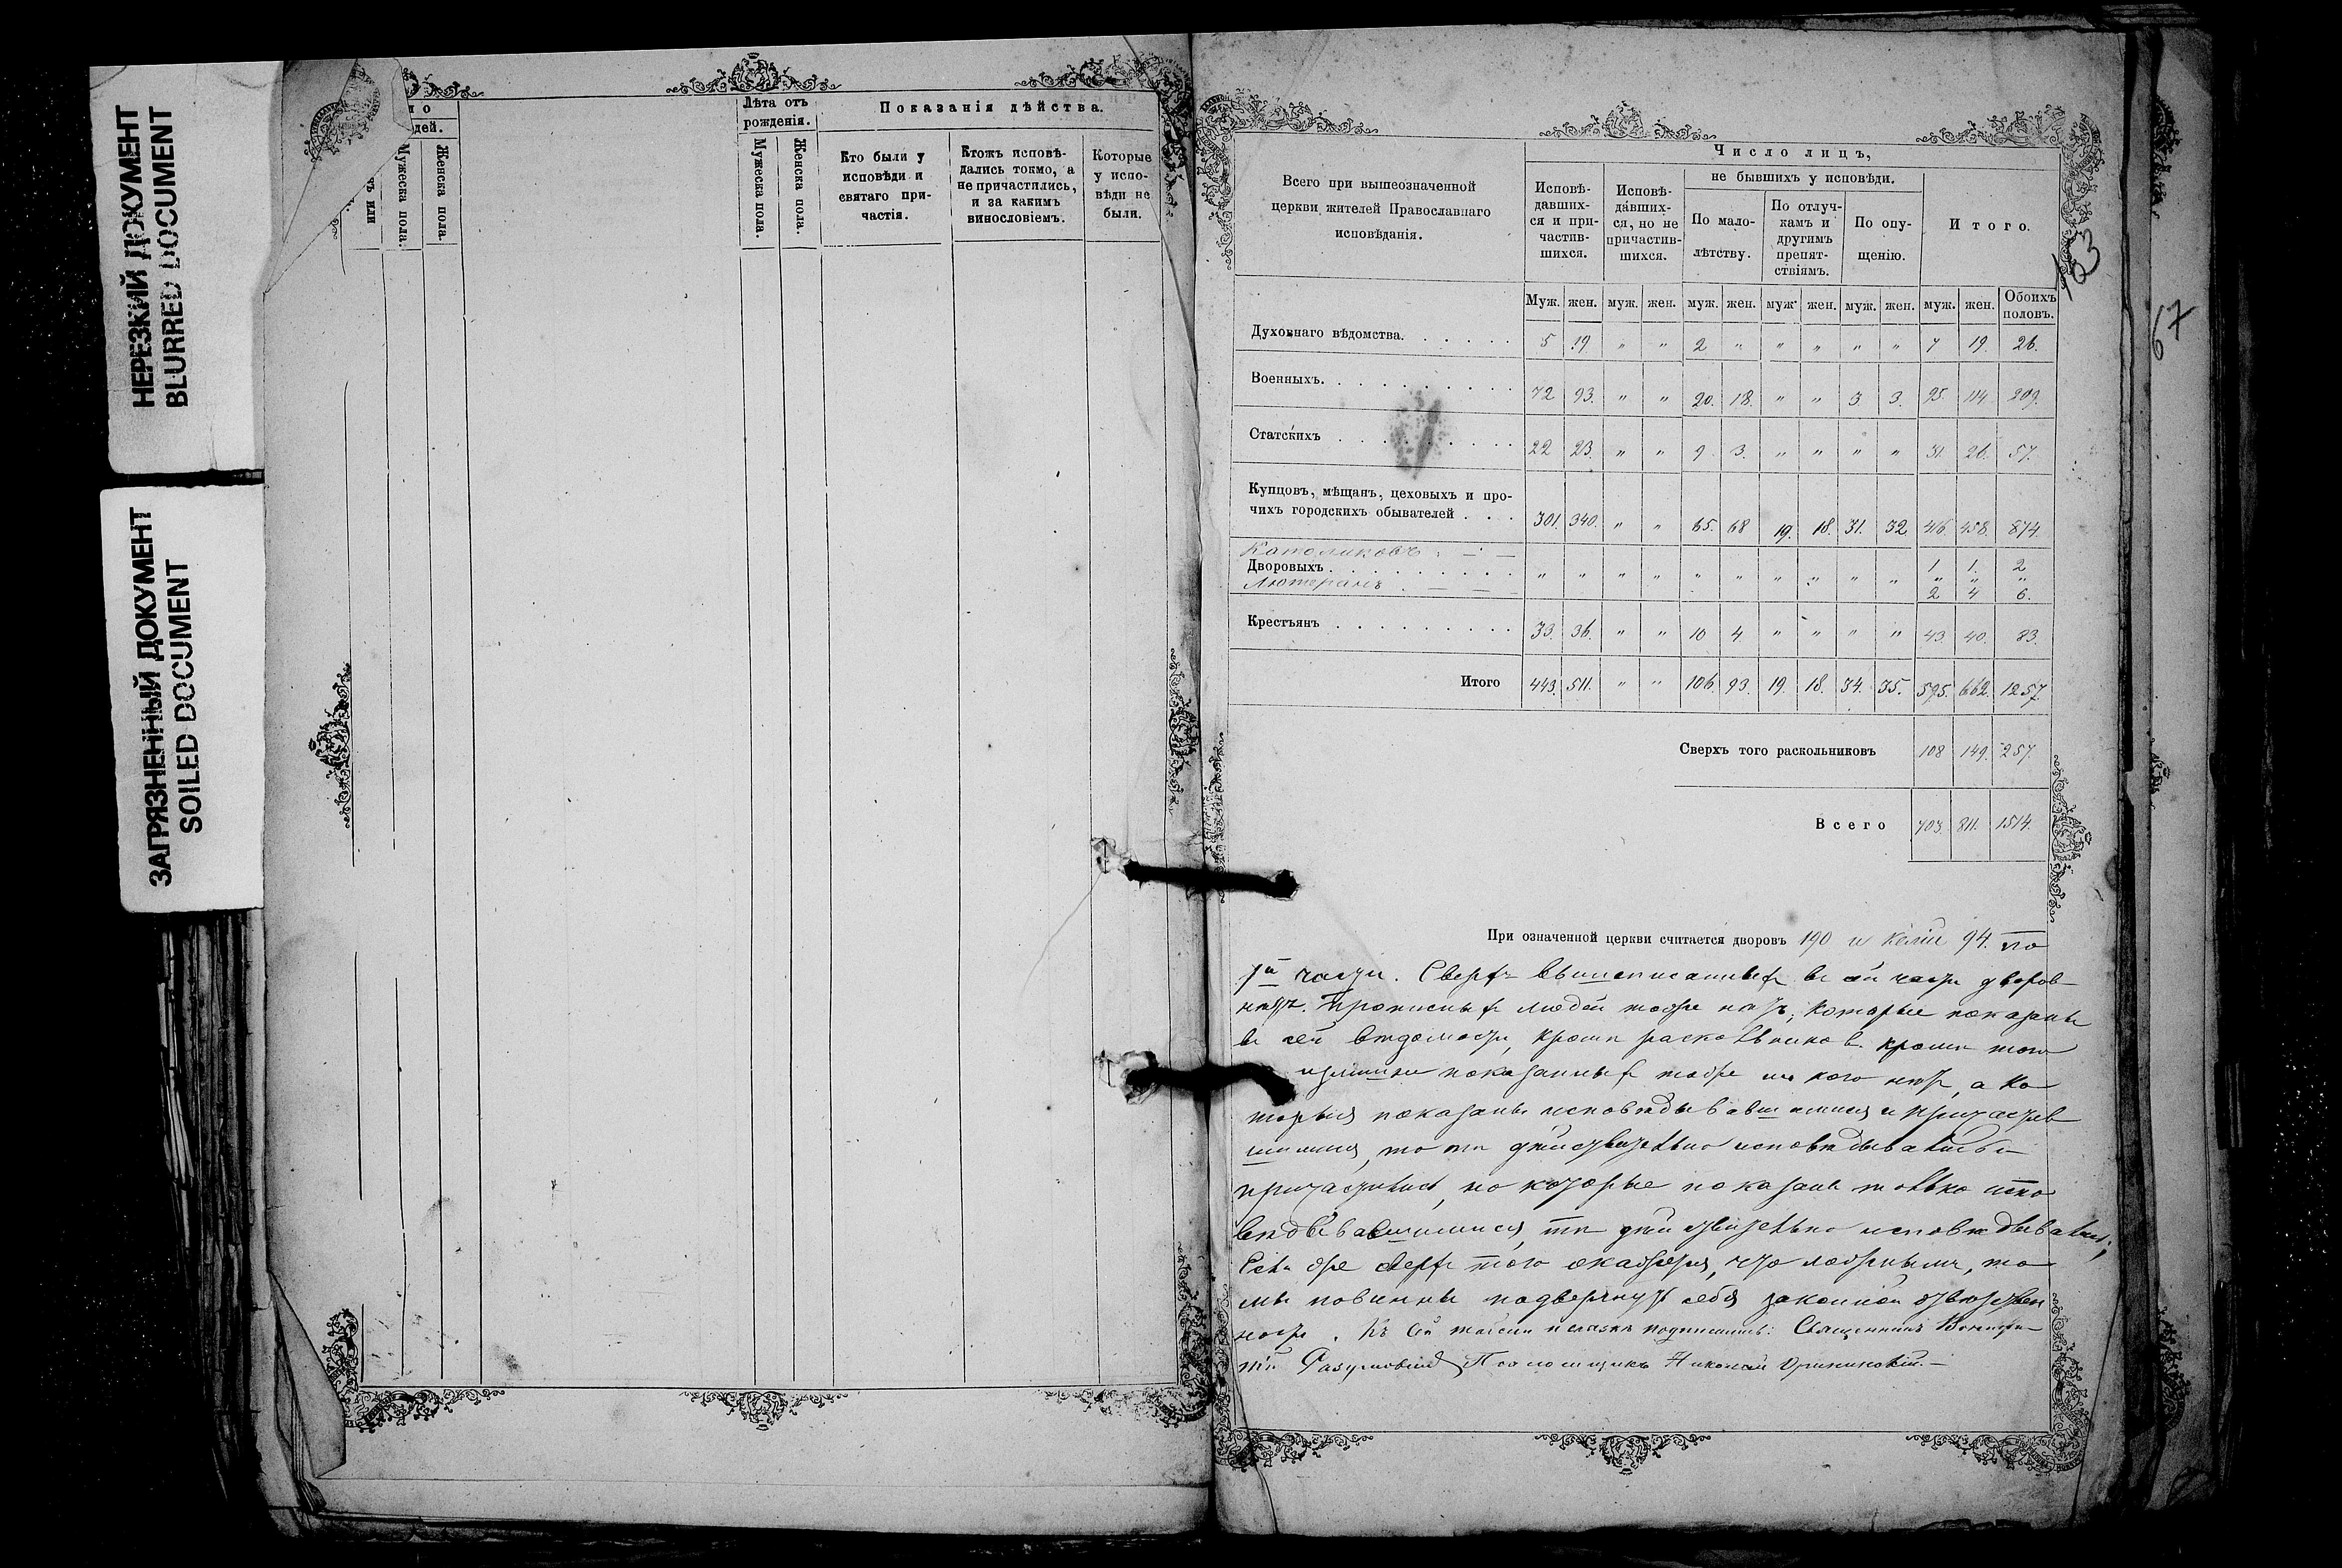 НЕРЕЗКИЙ ДОКУМЕНТ
BLURRED DOCUMENT
ЗАГРЯЗНЕННЫЙ ДОКУМЕНТ
SOILED DOCUMENT
дей.
или
Мужеска пола.
Женска пола.
Лѣта отъ
рожденія.
Мужеска пола.
Женска пола.
Показанія дѣйства.
Кто были у
исповѣди и
святаго при-
частія.
Ктожъ исповѣ-
дались токмо, а
не причастились,
и за какимъ
винословіемъ.
Которые
у испо-
вѣди не
были.
163
67
Всего при вышеозначенной
церкви жителей Православнаго
исповѣданія.
Число лицъ,
Исповѣ-
давших-
ся и при-
частив-
шихся.
Исповѣ-
давших-
ся, но не
причастив-
шихся.
не бывшихъ у исповѣди.
По мало-
лѣтству.
По отлуч-
камъ и
другимъ
препят-
ствіямъ.
По опу-
щенію.
Итого.
Муж. жен. муж. жен. муж. жен. муж жен. муж. жен. муж. жен. Обоихъ половъ.
Духовнаго вѣдомства. 5 19 " " 2 " " " " " 7 19. 26.
Военныхъ. 72 93. " " 20. 18. " " 3 3. 95. 114. 209.
Статскихъ 22 23. " " 9 3. " " " " 31. 26. 57.
Купцовъ, мѣщанъ, цеховыхъ и про-
чихъ городскихъ обывателей 301. 340. " " 65. 68 19. 18. 31. 32 416. 458. 874.
Католиковъ 1 1. 2
Дворовыхъ " " " " " " " " " " " " "
Лютеранъ 2 4 6.
Крестьянъ 33. 36. " " 10 4 " " " " 43. 40. 83.
Итого 443. 511. " " 106. 93. 19. 18. 34. 35. 595. 662. 1257.
Сверхъ того раскольниковъ 108 149. 257.
Всего 703. 811. 1514.
При означенной церкви считается дворовъ 190 и келій 94. по
части. Сверхъ вышеписанныхъ въ сей части дворовъ
нѣтъ. Прописныхъ людей тоже нѣтъ, которые показаны
въ сей вѣдомости, кромѣ раскольниковъ. кромѣ того
излишне показанныхъ тоже ни кого нѣтъ, а ко
торыя показаны исповѣдывавшимися и причастив
шимися, то тѣ дѣйствительно исповѣдывались и
причастились, но которые показаны только испо
вѣдывавшимися, тѣ дѣйствительно исповѣдывались;
Если же сверхъ того окажется, что ложнымъ, то
мы повинны подвергнуть себя законной отвѣтствен
ности. Къ сей подписались: Священникъ
Разумовскій Псаломщикъ Николай